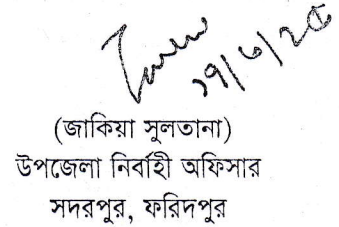 ১৭/৬/২৫
(জাকিয়া সুলতানা)
উপজেলা নির্বাহী অফিসার
সদরপুর, ফরিদপুর